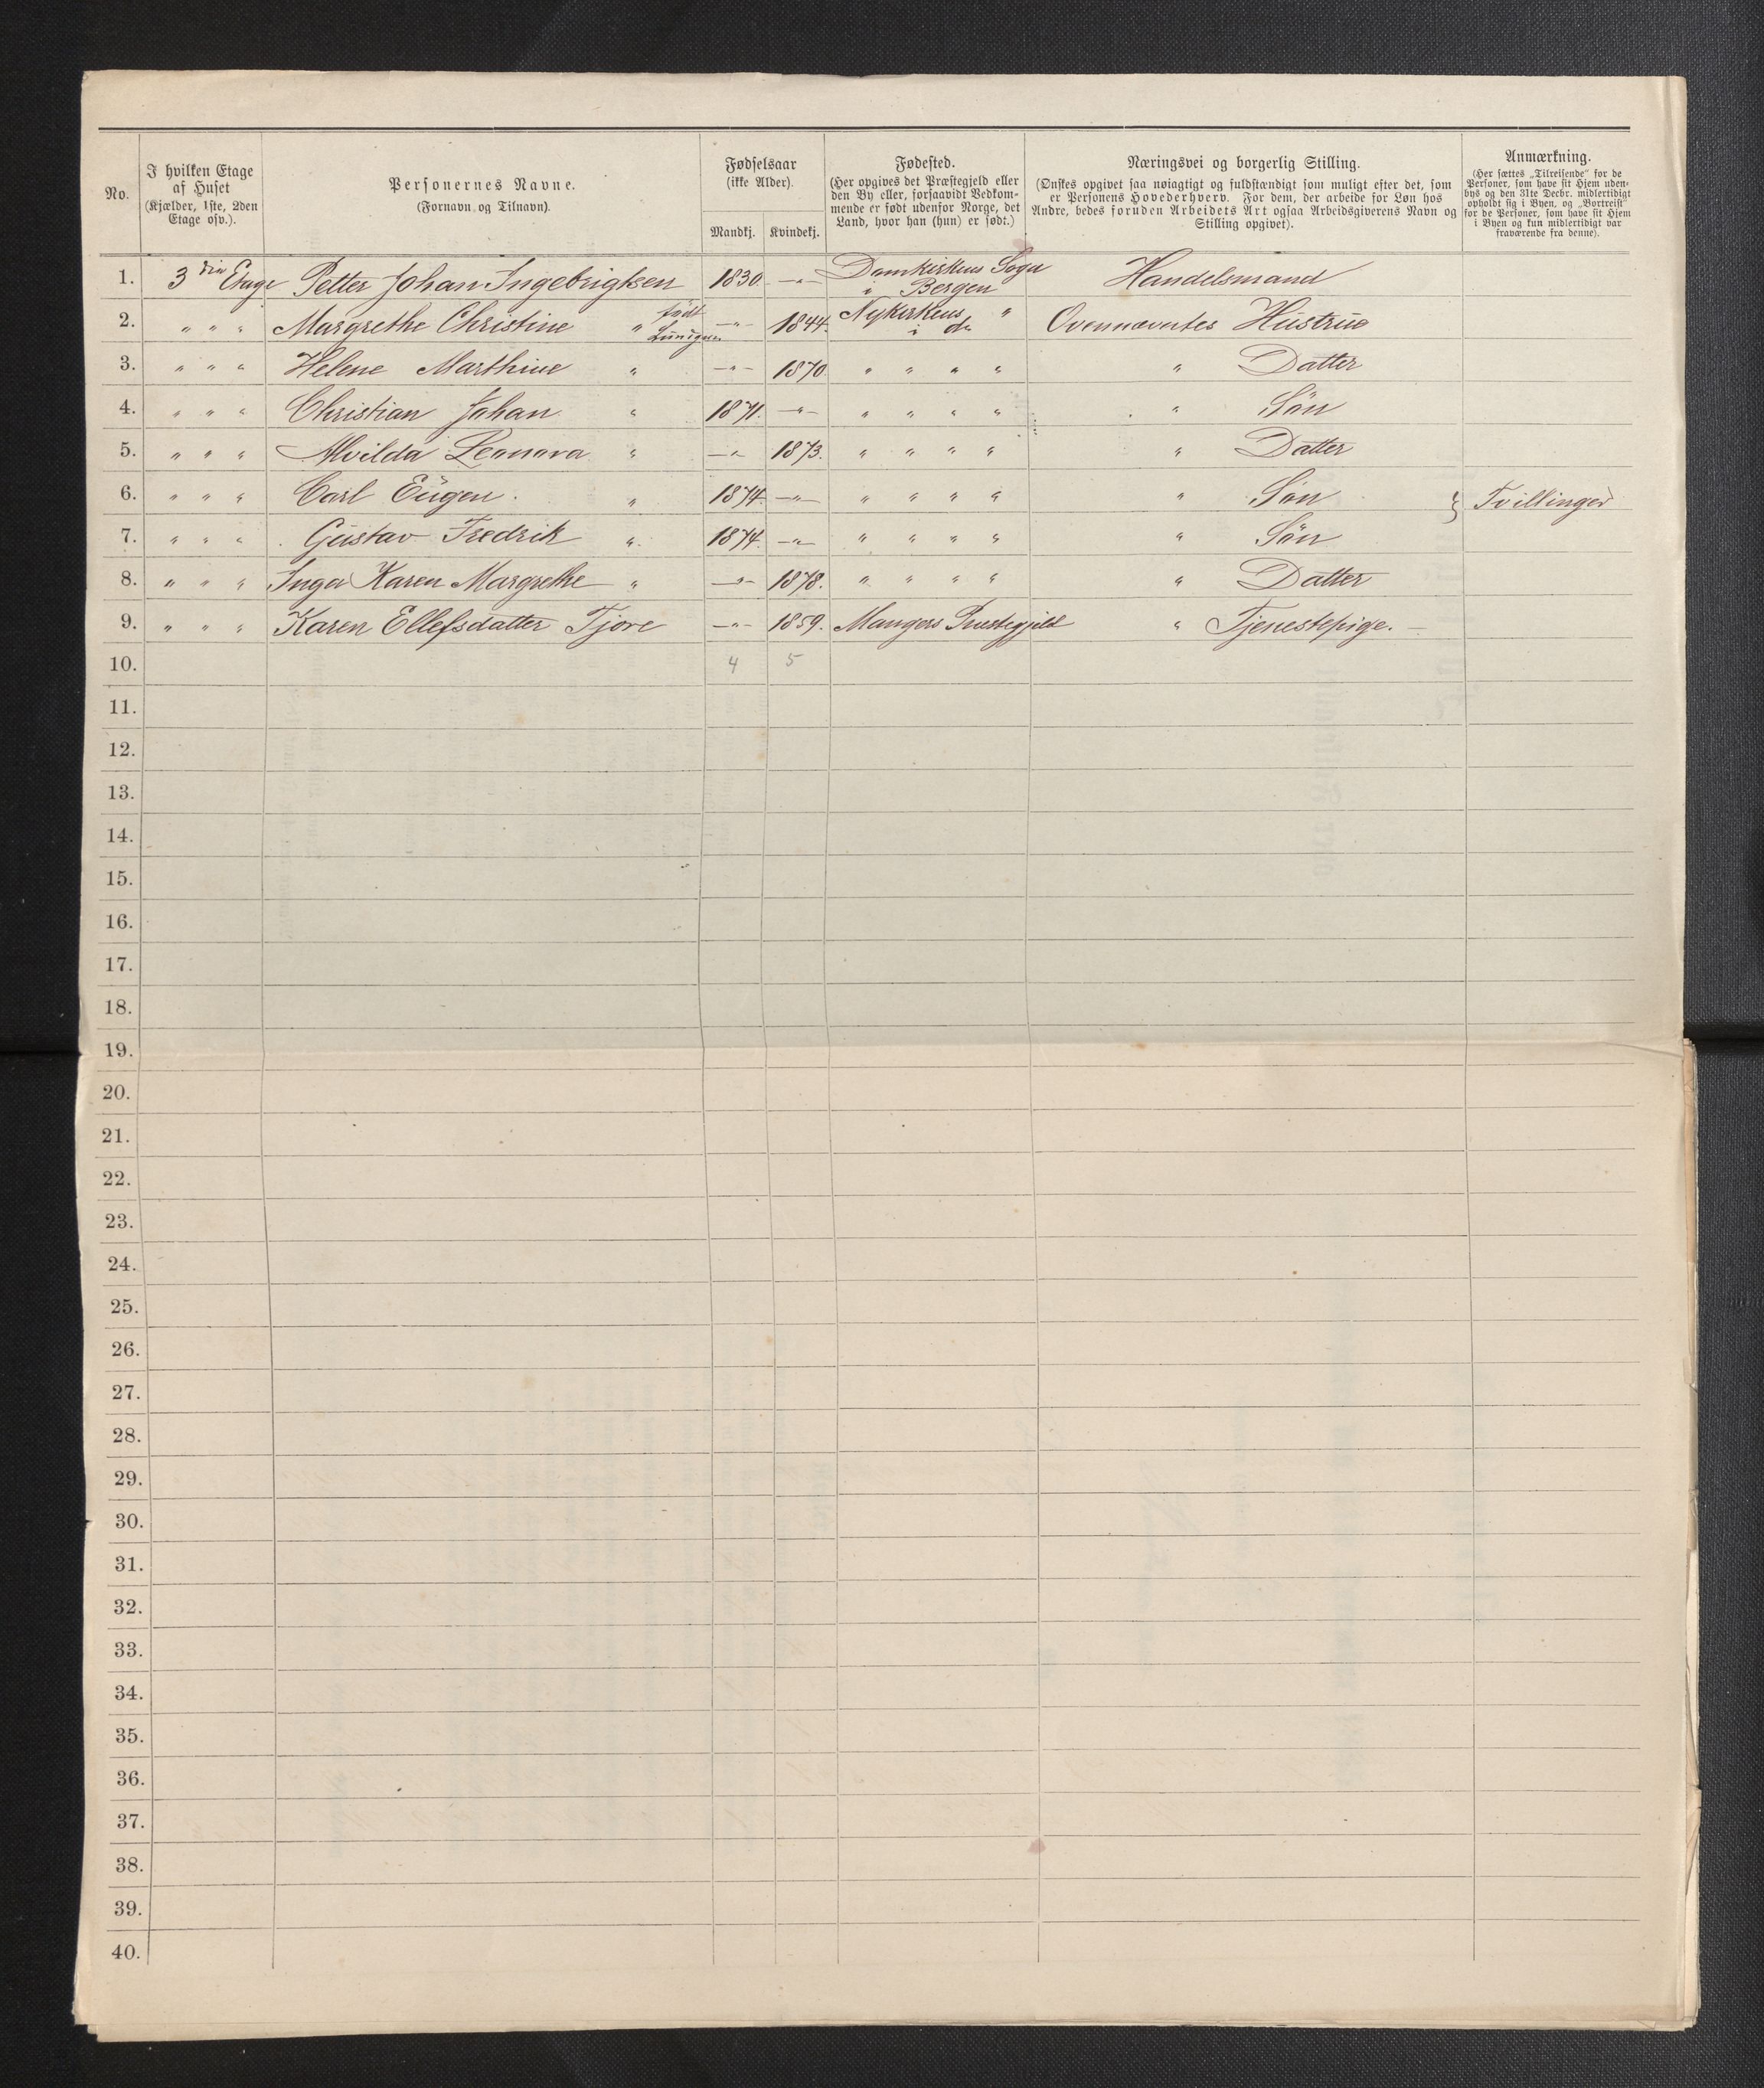 No.
I hvilken Etage
af Huset
(Kjælder, 1ste, 2den
Etage osv.).
Personernes Navne.
(Fornavn og Tilnavn).
Fødselsaar
(ikke Alder).
Mandkj. Kvindekj.
Fødested.
(Her opgives det Præstegjeld eller
den By eller, forsaavidt Vedkom-
mende er født udenfor Norge, det
Land, hvor han (hun) er født.)
Næringsvei og borgerlig Stilling.
(Ønskes opgivet saa nøiagtigt og fuldstændigt som muligt efter det, som
er Personens Hovederhverv. For dem, der arbeide for Løn hos
Andre, bedes foruden Arbeidets Art ogsaa Arbeidsgiverens Navn og
Stilling opgivet).
Anmærkning.
(Her sættes „Tilreisende" for de
Personer, som have sit Hjem uden-
bys og den 31te Decbr. midlertidigt
opholdt sig i Byen, og „Bortreist"
for de Personer, som have sit Hjem
i Byen og kun midlertidigt var
fraværende fra denne).
1. 3die Etage Petter Johan Ingebrigtsen 1830. —"— Domkirkens Sogn i Bergen Handelsmand
2. " " " Margrethe Christine " født —"— 1844. Nykirkens " i do Ovennævntes Hustrue
3. " " " Helene Marthine " —"— 1870. " " " " " Datter
4. " " " Christian Johan " 1871. —"— " " " " " Søn
5. " " " Alvilda Leonora " —"— 1873. " " " " " Datter
6. " " " Carl Eugen. " 1874. —"— " " " " " Søn } Tvillinger
7. " " " Gustav Fredrik " 1874. —"— " " " " " Søn
8. " " " Inga Karen Margrethe " —"— 1878. " " " " " Datter
9. " " " Karen Ellefsdatter Tjore —"— 1859. Mangers Prestegjeld " Tjenestepige. —
10. 4 5
11.
12.
13.
14.
15.
16.
17.
18.
19.
20.
21.
22.
23.
24.
25.
26.
27.
28.
29.
30.
31.
32.
33.
34.
35.
36.
37.
38.
39.
40.